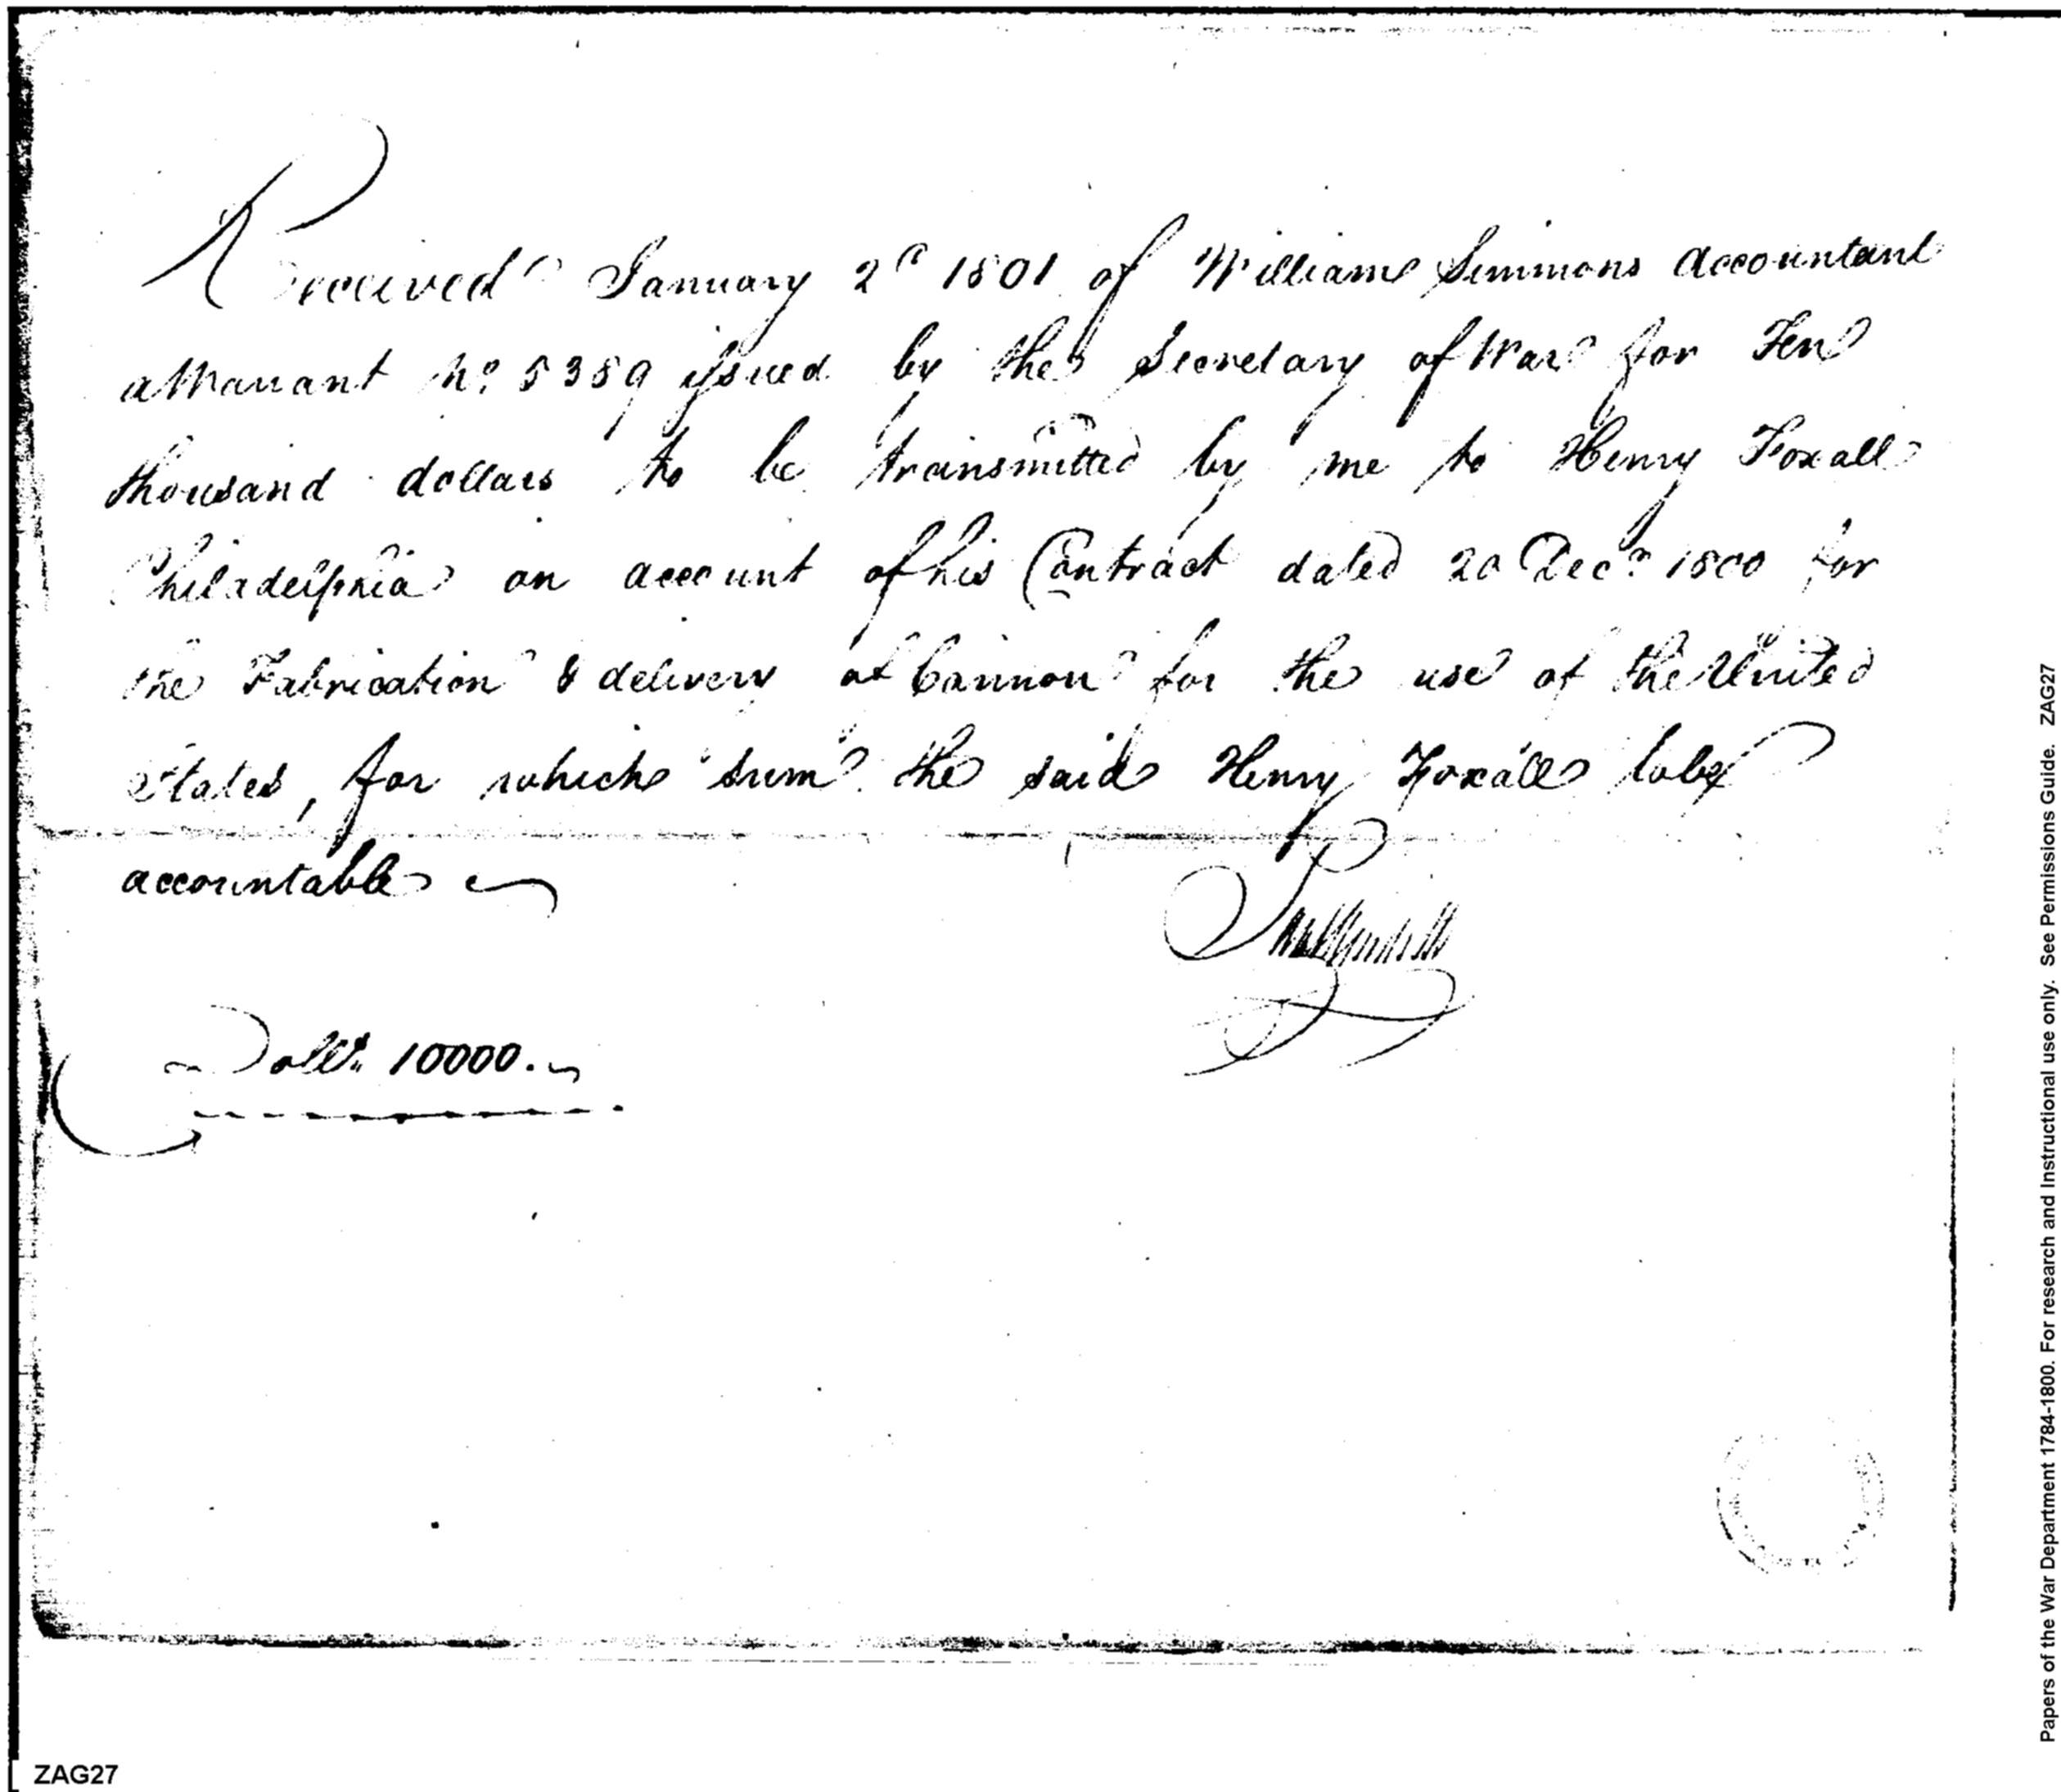 Received January 2d 1801 of William Simmons Accountant
a Warrant No. 5359 issued by the Secretary of War for Ten
thousand dollars to be transmitted by me to Henry Foxall
Philadelphia on account of his Contract dated 20 Decr. 1800 for
the Fabrication & delivery of Cannon for the use of the United
States, for which sum the said Henry Foxall to be
accountable
Dollrs. 10000.
ZAG27
Papers of the War Department 1784-1800. For research and Instructional use only. See Permissions Guide. ZAG27